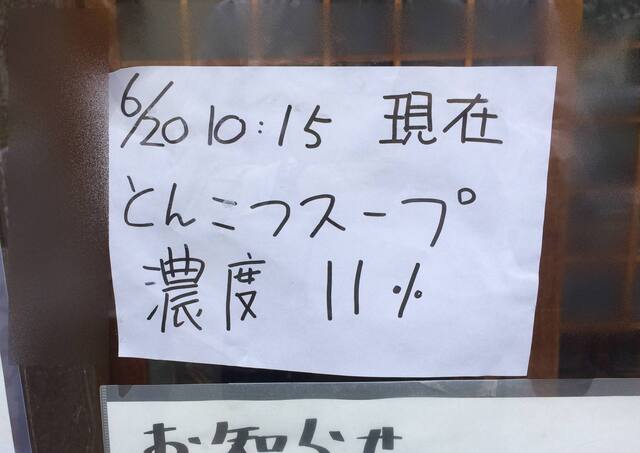 6/20 10:15 現在
とんこつスープ
濃度 11%
お知らせ